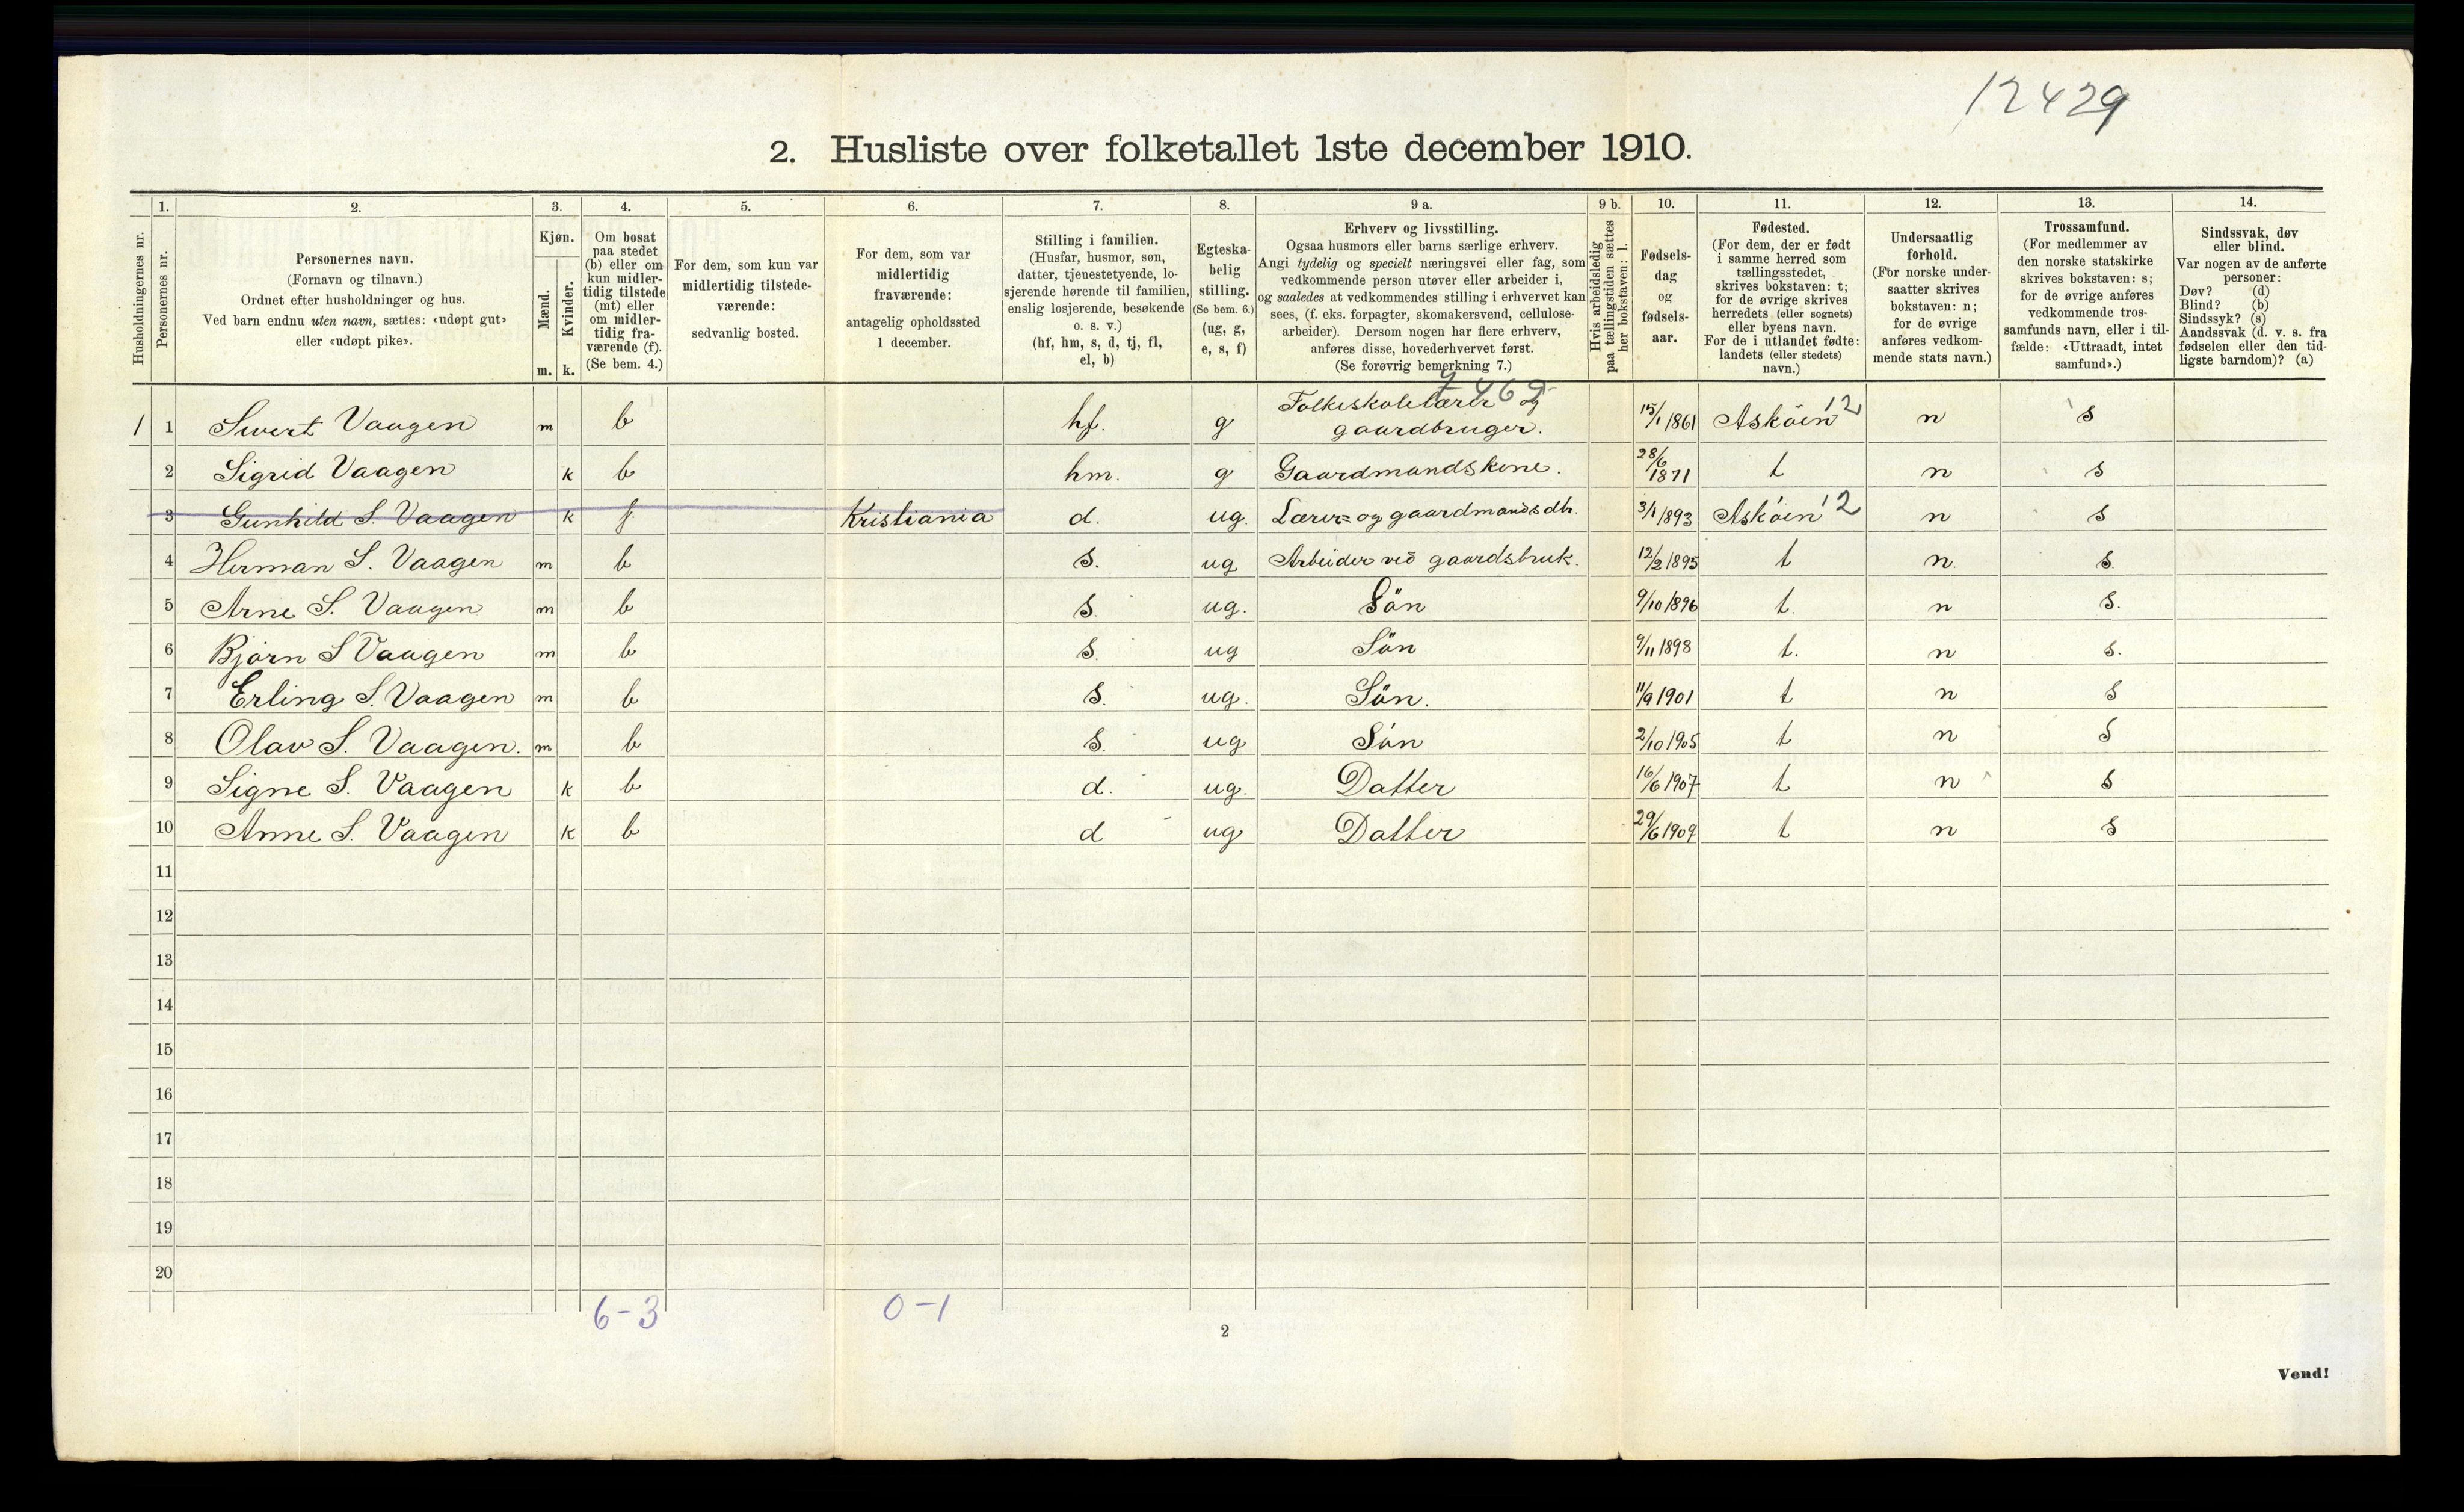 12429
2. Husliste over folketallet 1ste december 1910.
1. 2. 3. 4. 5. 6. 7. 8. 9 a. 9 b. 10. 11. 12. 13. 14.
Husholdningernes nr.
Personernes nr.
Personernes navn.
(Fornavn og tilnavn.)
Ordnet efter husholdninger og hus.
Ved barn endnu uten navn, sættes: «udøpt gut»
eller «udøpt pike».
Kjøn.
Mænd.
Kvinder.
m. k.
Om bosat
paa stedet
(b) eller om
kun midler-
tidig tilstede
(mt) eller
om midler-
tidig fra-
værende (f).
(Se bem. 4.)
For dem, som kun var
midlertidig tilstede-
værende:
sedvanlig bosted.
For dem, som var
midlertidig
fraværende:
antagelig opholdssted
1 december.
Stilling i familien.
(Husfar, husmor, søn,
datter, tjenestetyende, lo-
sjerende hørende til familien,
enslig losjerende, besøkende
o. s. v.)
(hf, hm, s, d, tj, fl,
el, b)
Egteska-
belig
stilling.
(Se bem. 6.)
(ug, g,
e, s, f)
Erhverv og livsstilling.
Ogsaa husmors eller barns særlige erhverv.
Angi tydelig og specielt næringsvei eller fag, som
vedkommende person utøver eller arbeider i,
og saaledes at vedkommendes stilling i erhvervet kan
sees, (f. eks. forpagter, skomakersvend, cellulose-
arbeider). Dersom nogen har flere erhverv,
anføres disse, hovederhvervet først.
(Se forøvrig bemerkning 7.)
Hvis arbeidsledig
paa tællingstiden sættes
her bokstaven: l.
Fødsels-
dag
og
fødsels-
aar.
Fødested.
(For dem, der er født
i samme herred som
tællingsstedet,
skrives bokstaven: t;
for de øvrige skrives
herredets (eller sognets)
eller byens navn.
For de i utlandet fødte:
landets (eller stedets)
navn.)
Undersaatlig
forhold.
(For norske under-
saatter skrives
bokstaven: n;
for de øvrige
anføres vedkom-
mende stats navn.)
Trossamfund.
(For medlemmer av
den norske statskirke
skrives bokstaven: s;
for de øvrige anføres
vedkommende tros-
samfunds navn, eller i til-
fælde: «Uttraadt, intet
samfund».)
Sindssvak, døv
eller blind.
Var nogen av de anførte
personer:
Døv? (d)
Blind? (b)
Sindssyk? (s)
Aandssvak (d. v. s. fra
fødselen eller den tid-
ligste barndom)? (a)
1 1 Sivert Vaagen m b hf. g Folkeskolelærer og gaardbruger. 15/1 1861 Asköen 12 n s
2 Sigrid Vaagen k b hm. g Gaardmandskone. 28/6 1871 t n s
3 Gunhild S. Vaagen k f. Kristiania d. ug. Lærer= og gaardmandsdtr. 3/1 1893 Asköen 12 n s
4 Herman S. Vaagen m b s. ug Arbeider ved gaardsbruk. 12/2 1895 t n. s.
5 Arne S. Vaagen m b s. ug. Sön 9/10 1896 t. n s.
6 Bjørn S Vaagen m b s. ug Sön 9/11 1898 t. n s.
7 Erling S. Vaagen m b s. ug. Sön. 11/9 1901 t n s
8 Olav S. Vaagen. m b s. ug Sön 2/10 1905 t n s
9 Signe S. Vaagen k b d. ug. Datter 16/6 1907 t n s
10 Anne S. Vaagen k b d ug Datter 29/6 1909 t n s
11
12
13
14
15
16
17
18
19
20
6-3 0-1
2
Vend!